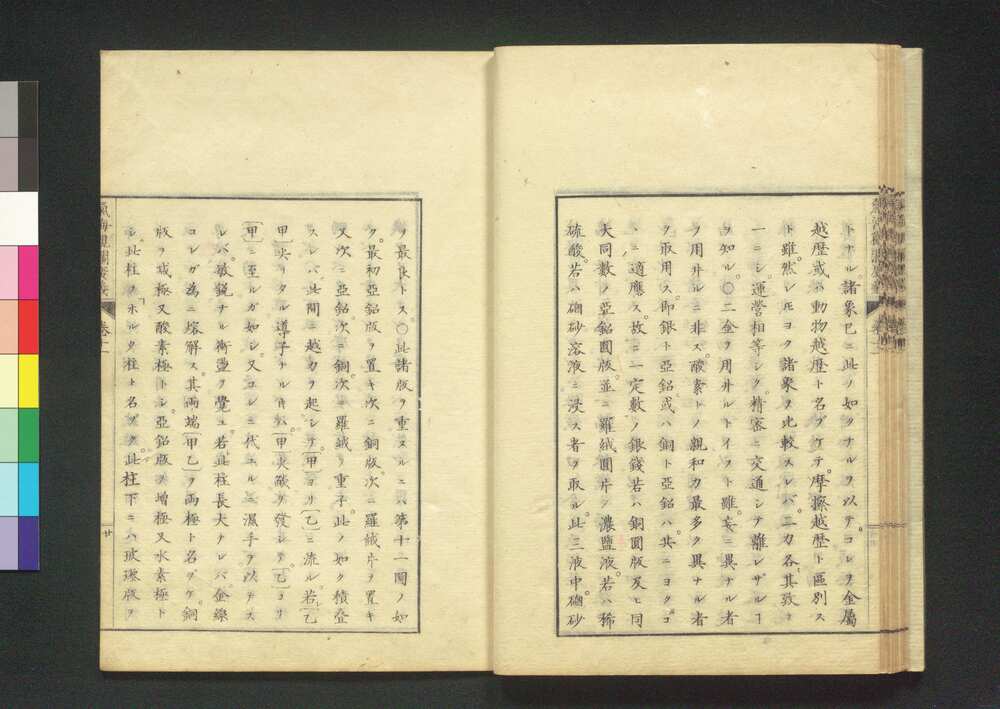 トナル諸象已ニ此ノ如クナルヲ以テ。コレヲ金屬
越歴或ハ動物越歴ト名ヅケテ。摩擦越歴ト區別ス
ト雖。然レ𪜈ヨク諸象ヲ比較スレバ。二力各其致ヲ
一ニシ。運營相等シク精密ニ交通シテ離レザルヿ
ヲ知ル。〇二金ヲ用井ルトイヘト雖妄ニ異ナル者
ヲ用井ルニ非ス。酸素トノ親和力最多ク異ナル者
ヲ取用ス。即銀ト亞鉛或ハ銅ト亞鉛ハ。其ニヨクコ
ヽニ適應ス。故ニ一定數ノ銀錢若ハ銅圓版及ヒ同
大同數ノ亞鉛圓版並ニ羅絨圓片ヲ濃鹽液。若ハ稀
硫酸。若ハ硇砂溶液ニ浸ス者ヲ取ル。此三液中。硇砂
ヲ最良トス。〇此諸版ヲ重ヌルニハ。第十二圖ノ如
ク。最初亞鉛版ヲ置キ次ニ銅版。次ニ羅絨片ヲ置キ
又次ニ亞鉛次ニ銅。次ニ羅絨ヲ重子。此ノ如ク積疊
スレバ此間ニ越力ヲ起シテ。〔甲〕ヨリ〔乙〕ニ流ル。若〔乙〕
甲〕尖リタル導子ナルキハ。〔甲〕火礮ヲ發シテ。〔乙〕ヨリ
〔甲〕ニ至ルガ如シ。又コレニ代ユルニ濕手ヲ以テス
レバ。敏鋭ナル衝盪ヲ覺ユ。若此柱長大ナレバ。金線
コレガ為ニ熔解ス。其両端〔甲乙〕ヲ両極ト名ヅケ。銅
版ヲ或極又酸素極トシ。亞鉛版ヲ増極又水素極ト
シ。此柱ヲホルタ柱ト名ヅク。此柱下ニハ玻瓈版ヲ
卷二
廿